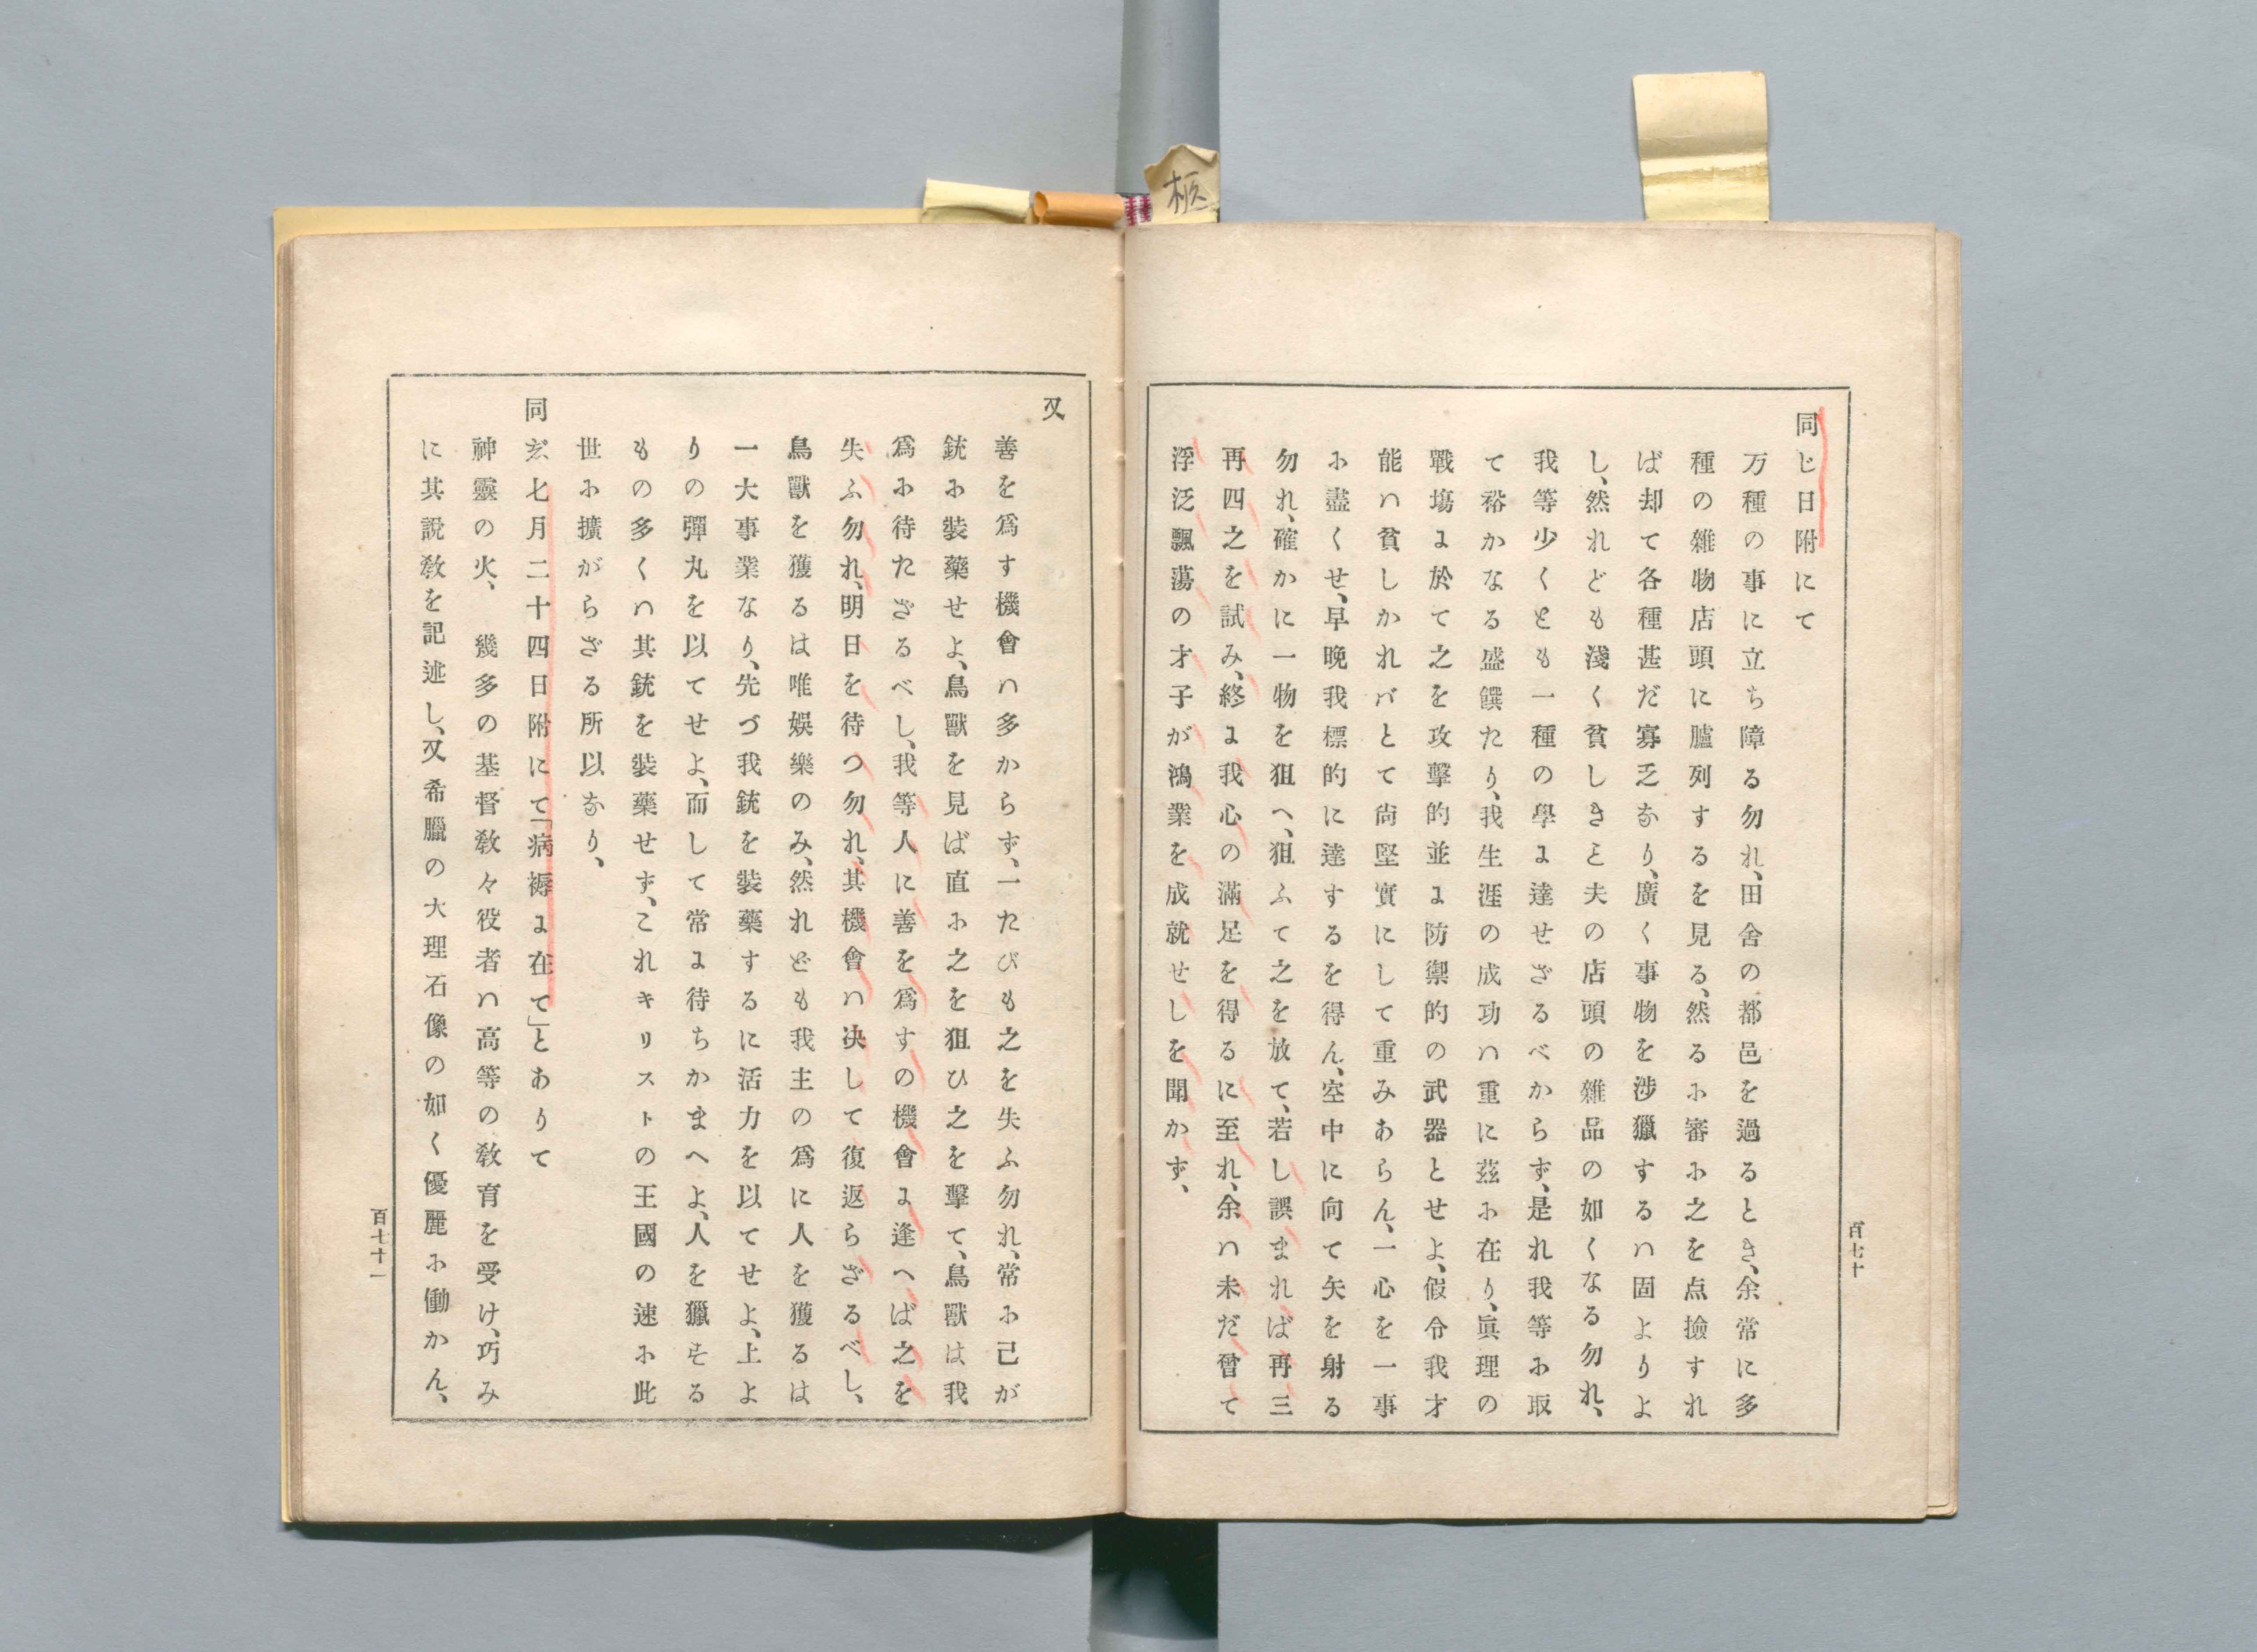 柩
同じ日附にて
万種の事に立ち障る勿れ、田舍の都邑を過るとき、余常に多
種の雜物店頭に臚列するを見る、然るふ審ふ之を点撿すれ
ば却て各種甚だ寡乏なり、廣く事物を涉獵するハ固よりよ
し、然れども淺く貧しきこと夫の店頭の雜品の如くなる勿れ、
我等少くとも一種の學よ達せざるべからず、是れ我等ふ取
て裕かなる盛饌たり、我生涯の成功ハ重に茲ふ在り、眞理の
戰塲よ於て之を攻擊的並よ防禦的の武器とせよ、假令我才
能ハ貧しかれバとて尙堅實にして重みあらん、一心を一事
ふ盡くせ、早晩我標的に達するを得ん、空中に向て矢を射る
勿れ、確かに一物を狙へ、狙ふて之を放て、若し誤まれば再三
再四之を試み、終よ我心の滿足を得るに至れ、余ハ未だ曾て
浮泛飄蕩の才子が鴻業を成就せしを聞かず、
百七十
又
善を爲す機會ハ多からず、一たびも之を失ふ勿れ、常ふ己が
銃ふ裝藥せよ、鳥獸を見ば直ふ之を狙ひ之を擊て、鳥獸は我
爲ふ待たざるべし、我等人に善を爲すの機會よ逢へば之を
失ふ勿れ、明日を待つ勿れ、其機會ハ决して復返らざるべし、
鳥獸を獲るは唯娯樂のみ、然れども我主の爲に人を獲るは
一大事業なり、先づ我銃を裝藥するに活力を以てせよ、上よ
りの彈丸を以てせよ、而して常よ待ちかまへよ、人を獵する
もの多くハ其銃を裝藥せず、これキリストの王國の速ふ此
世ふ擴がらざる所以なり、
同じ七月二十四日附にて「病褥よ在て」とありて
神靈の火、　幾多の基督敎々役者ハ高等の敎育を受け、巧み
に其說敎を記述し、又希臘の大理石像の如く優麗ふ働かん、
百七十一